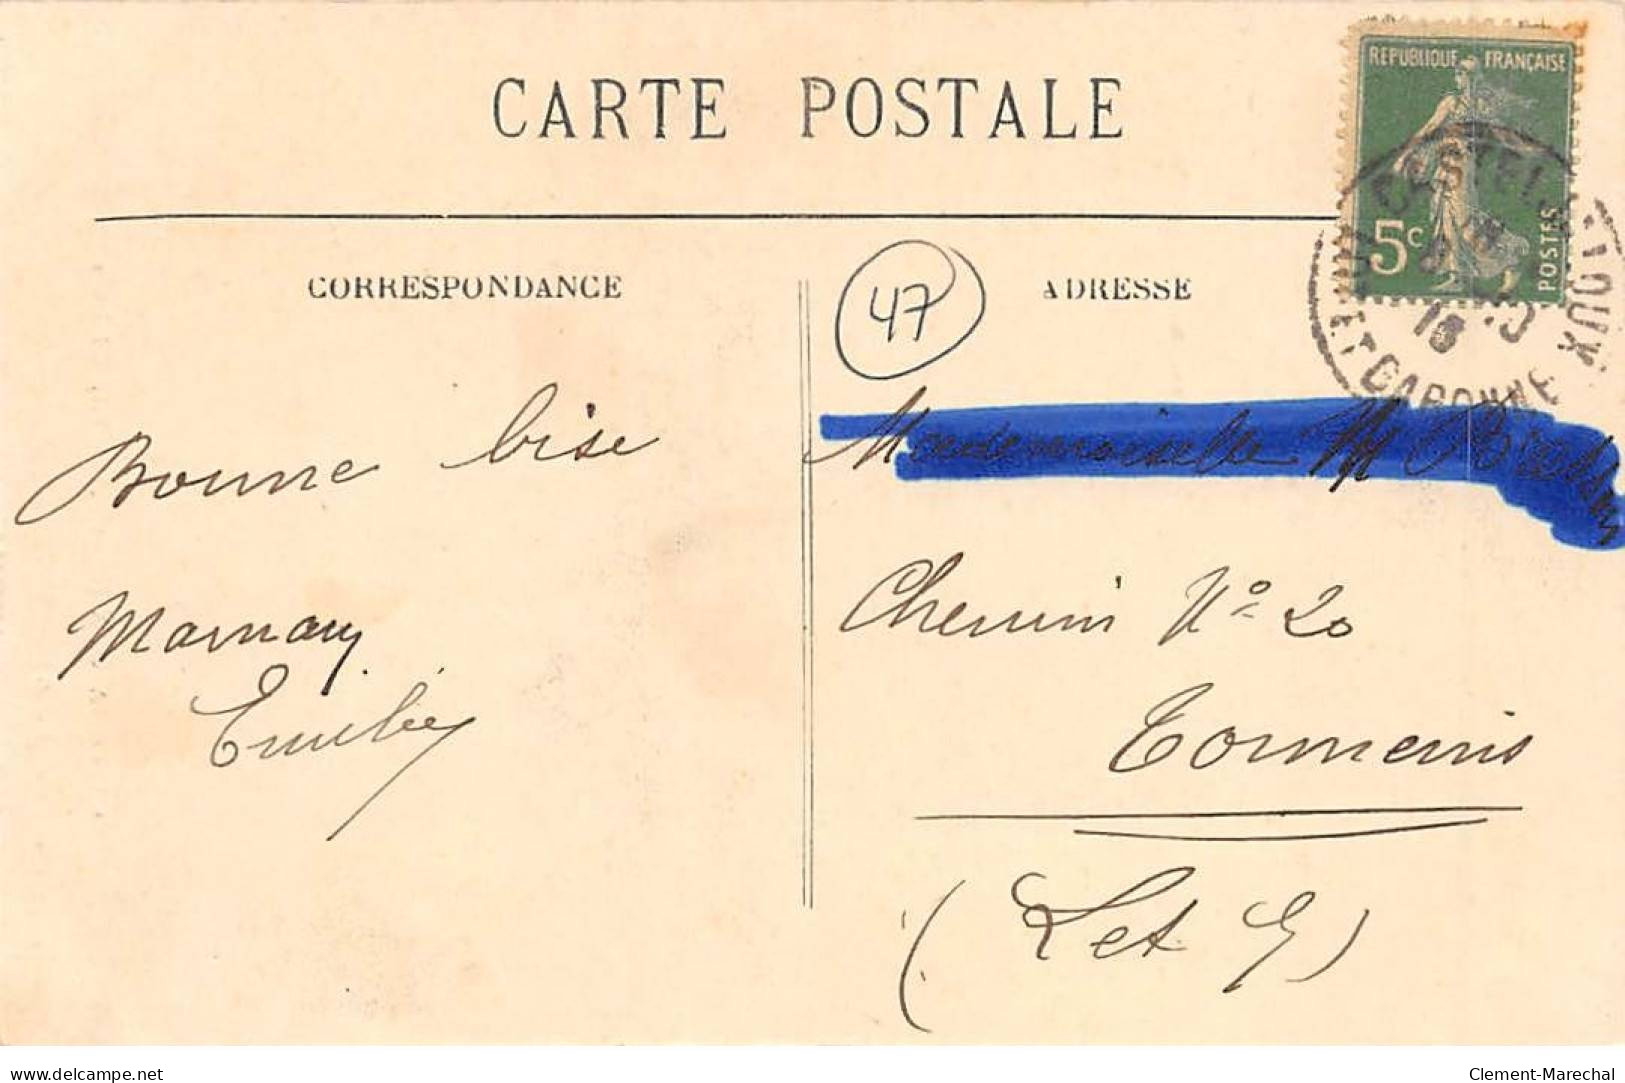 CARTE POSTALE
REPUBLIQUE FRANÇAISE
5c
POSTES
CASTELJALOUX
LOT ET GARONNE
15
CORRESPONDANCE
47
ADRESSE
Bonne bise
Mamary
Mademoiselle M
Chemin N° 20
Tonneins
(L et G)
www.delcampe.net
Clement-Marechal